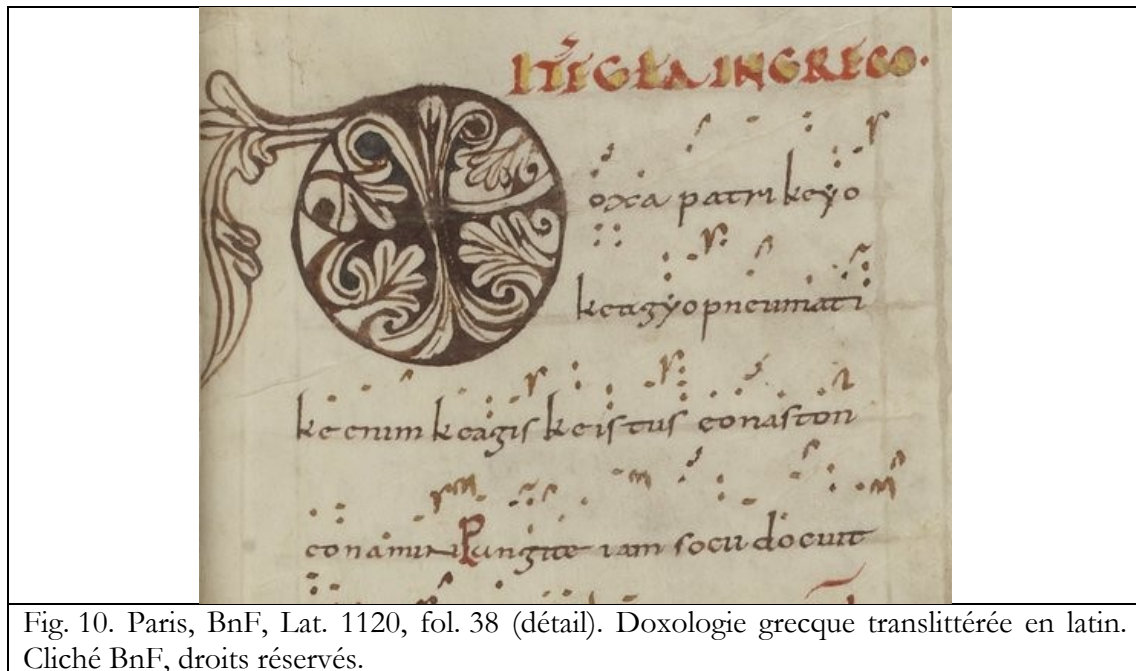 ITE GLA IN GRECO·
oxa patri keyo
keagyopneumati
ke enim keagis keistus eonaston
eonamin Pangite iam socii docuit
Fig. 10. Paris, BnF, Lat. 1120, fol. 38 (détail). Doxologie grecque translittérée en latin.
Cliché BnF, droits réservés.